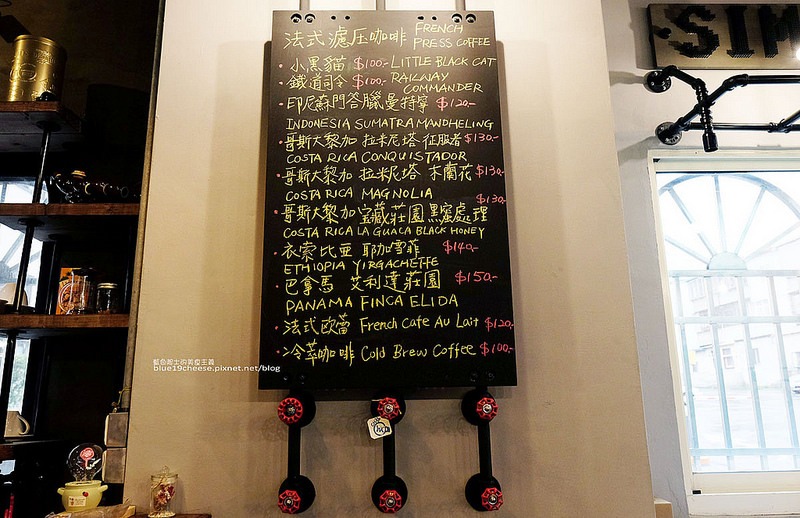 法式濾压咖啡 FRENCH PRESS COFFEE
・小黑貓 $100- LITTLE BLACK CAT
・鐵道司令 $100- RAILWAY COMMANDER
・印尼蘇門答臘曼特寧 $120-
INDONESIA SUMATRA MANDHELING
・哥斯大黎加 拉米尼塔 征服者 $130-
COSTA RICA CONQUISTADOR
・哥斯大黎加 拉米尼塔 木蘭花 $130-
COSTA RICA MAGNOLIA
・哥斯大黎加 宝藏莊園 黑蜜處理 $130-
COSTA RICA LA GUACA BLACK HONEY
・衣索比亞 耶加雪菲 $140-
ETHIOPIA YIRGACHEFFE
・巴拿馬 艾利達莊園 $150-
PANAMA FINCA ELIDA
・法式歐蕾 French Cafe Au Lait $120-
・冷萃咖啡 Cold Brew Coffee $100-
SIM
藍色起士的美食主義
blue19cheese.pixnet.net/blog